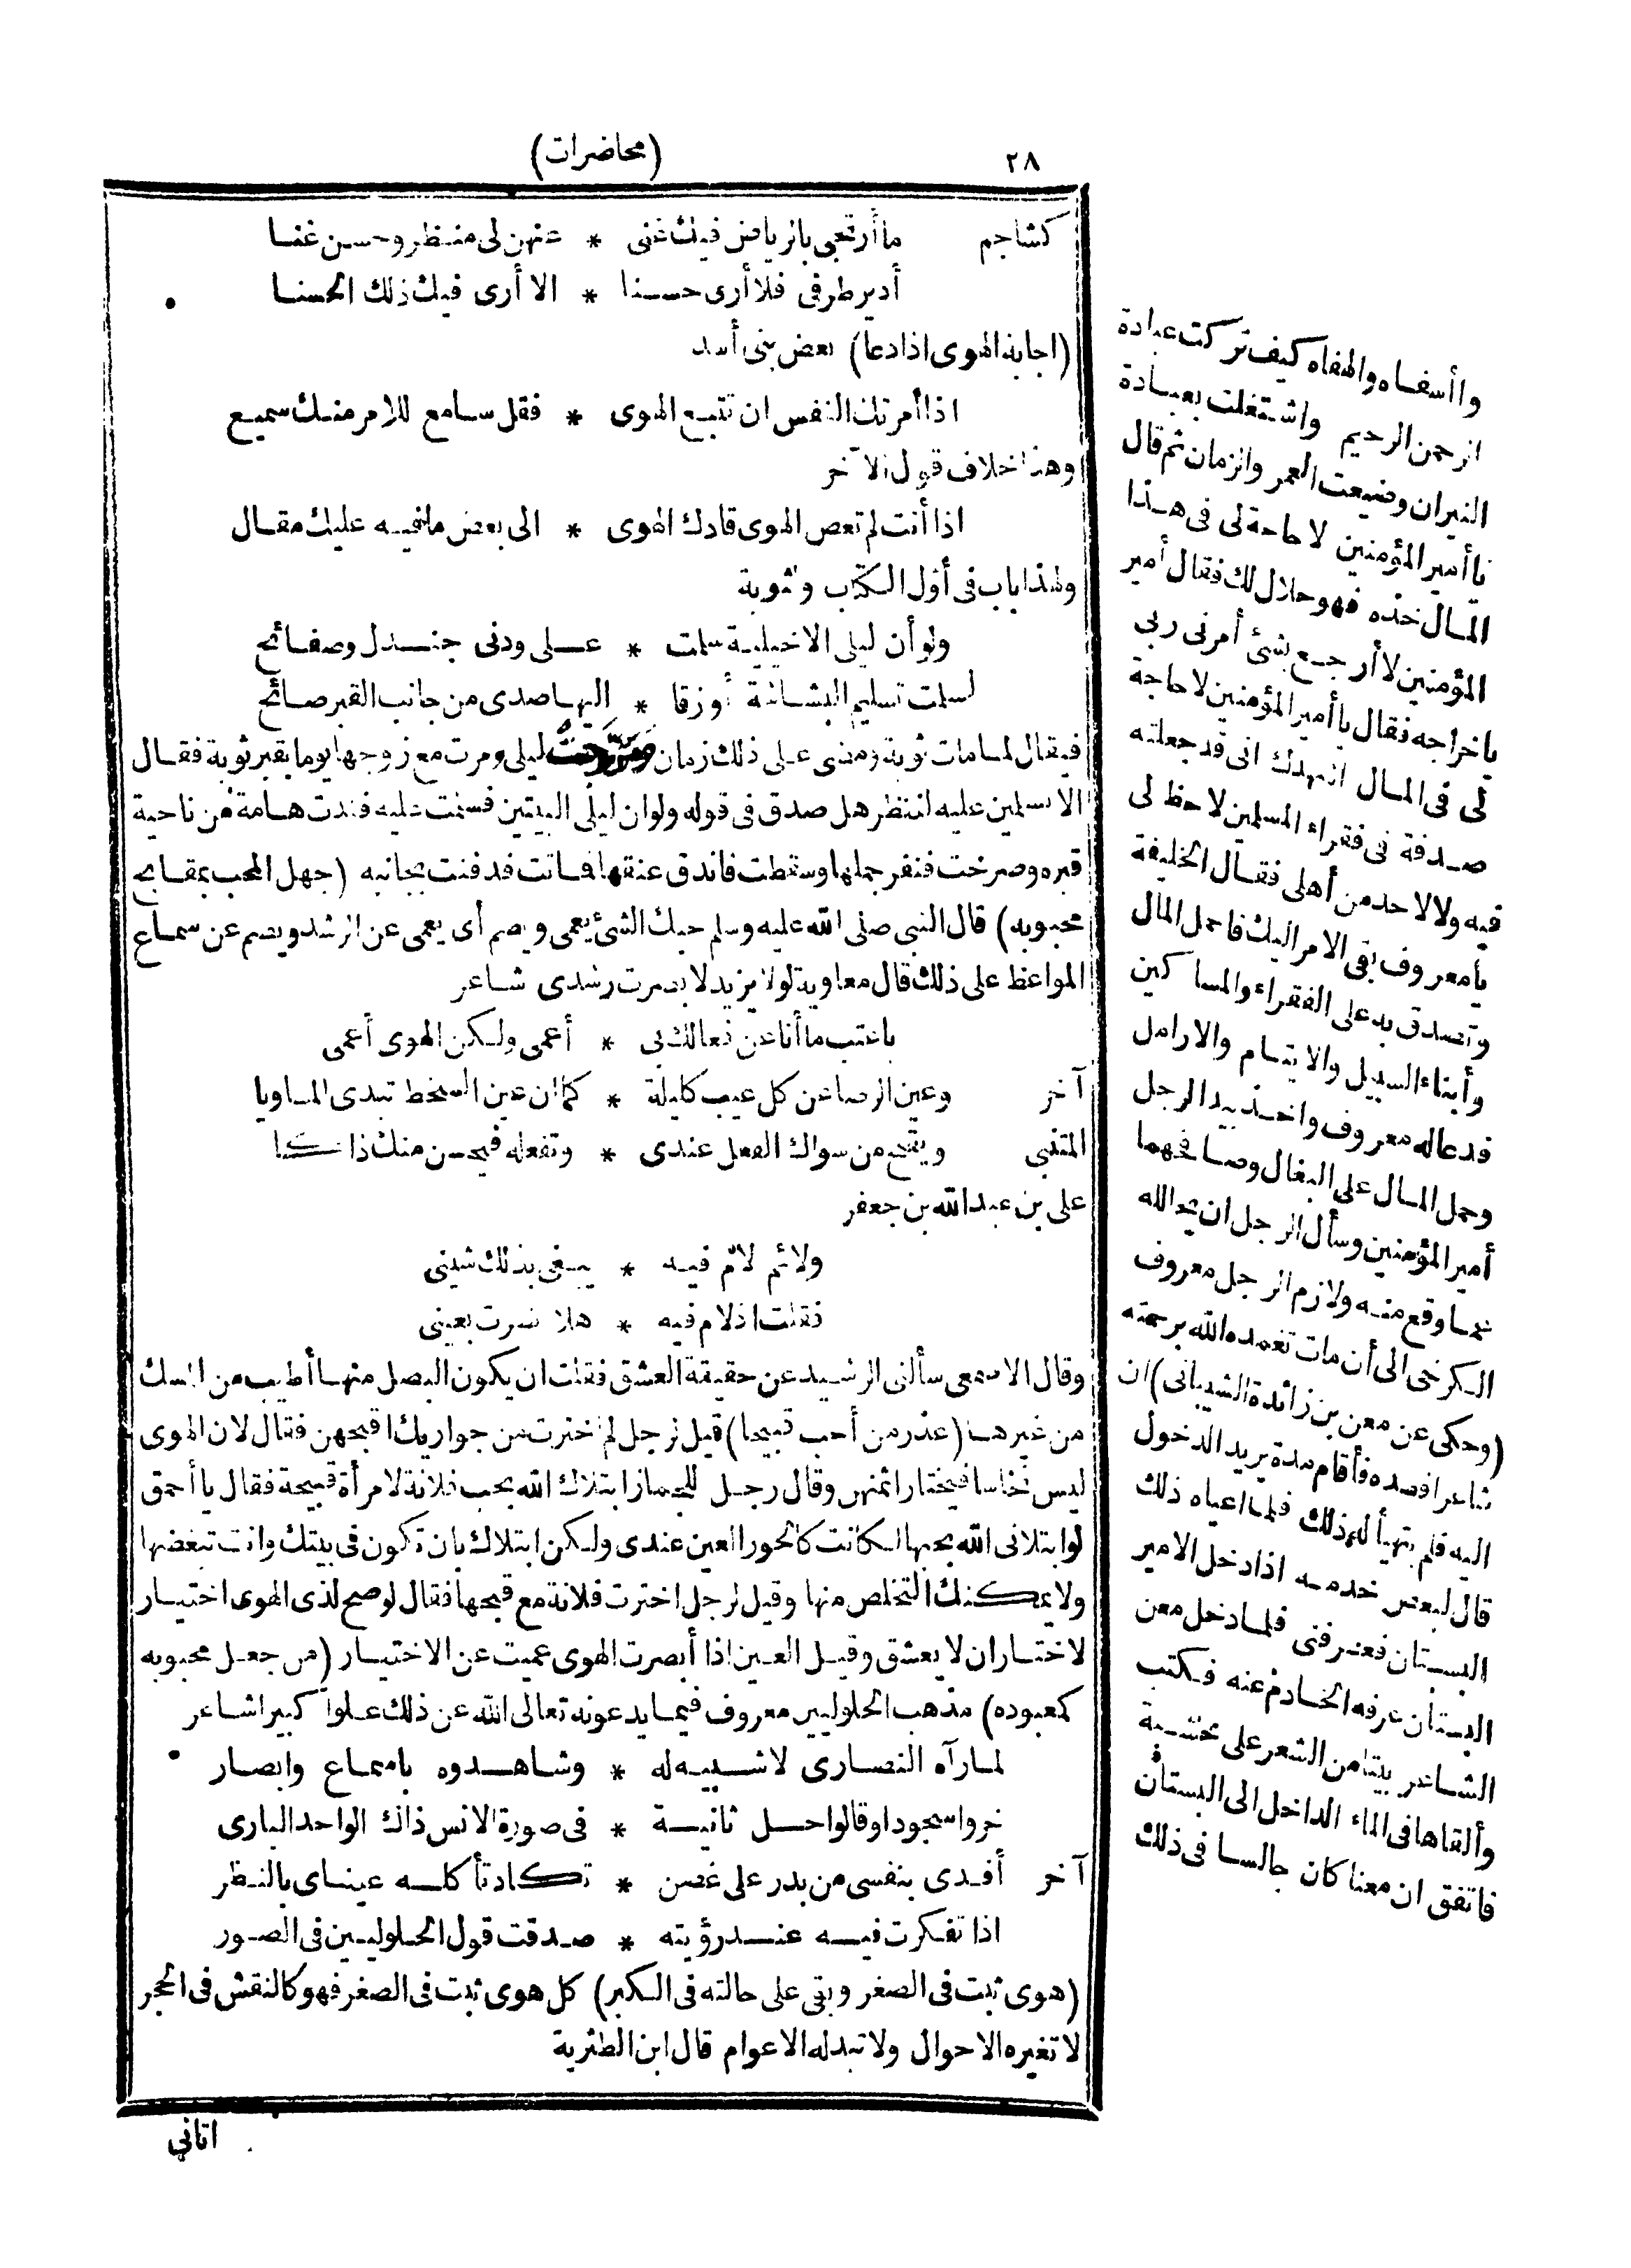 ٢٨
(محاضرات)
كشاجم ما أرتجى بالرياض فيك غنى * عنهن لى منظر وحسن غنا
أدير طرفى فلا أرى حسنا * الا أرى فيك ذلك الحسنا
(اجابة الهوى اذا دعا) بعض بنى أسد
اذا أمرتك النفس ان تتبع الهوى * فقل سامع للامر منك سميع
وهذا خلاف قول الآخر
اذا أنت لم تعص الهوى قادك الهوى * الى بعض ما فيه عليك مقال
ولهذا باب فى أول الكتاب وثوبة
ولو أن ليلى الاخيلية سلمت * على ودنى جندل وصفائح
لسلمت تسليم البشاشة أو زقا * اليها صدى من جانب القبر صائح
فيقال لما مات ثوبة ومضى على ذلك زمان وتزوجت ليلى ومرت مع زوجها يوما بقبر ثوبة فقال
الا تسلمين عليه لننظر هل صدق فى قوله ولو ان ليلى البيتين فسلمت عليه فندت هامة من ناحية
قبره وصرخت فنفر جملها وسقطت فاندق عنقها فماتت فدفنت بجانبه (جهل المحب بمقابح
محبوبه) قال النبى صلى الله عليه وسلم حبك الشئ يعمى ويصم أى يعمى عن الرشد ويصم عن سماع
المواعظ على ذلك قال معاوية لولا يزيد لابصرت رشدى شاعر
ياعتب ما أنا عن فعالك بى * أعمى ولكن الهوى أعمى
آخر وعين الرضا عن كل عيب كليلة * كما ان عين السخط تبدى المساويا
المتنبى ويقبح من سواك الفعل عندى * وتفعله فيحسن منك ذاكا
على بن عبد الله بن جعفر
ولائم لام فيه * يبغى بذلك شينى
فقلت اذ لام فيه * هلا نظرت بعينى
وقال الاصمعى سألنى الرشيد عن حقيقة العشق فقلت ان يكون البصل منها أطيب من المسك
من غيرها (عذر من أحب قبيحا) قيل لرجل لم اخترت من جواريك اقبحهن فقال لان الهوى
ليس نخاسا فيختار اثمنهن وقال رجل للجماز ابتلاك الله بحب فلانة لامرأة قبيحة فقال يا أحمق
لو ابتلانى الله بحبها لكانت كالحور العين عندى ولكن ابتلاك بان تكون فى بيتك وانت تبغضها
ولا يمكنك التخلص منها وقيل لرجل اخترت فلانة مع قبحها فقال لو صح لذى الهوى اختيار
لاختار ان لا يعشق وقيل العين اذا أبصرت الهوى عميت عن الاختيار (من جعل محبوبه
كمعبوده) مذهب الحلوليين معروف فيما يدعونه تعالى الله عن ذلك علوا كبيرا شاعر
لما رآه النصارى لا شبيه له * وشاهدوه باسماع وابصار
خروا سجودا وقالوا حل ثانية * فى صورة الانس ذاك الواحد البارى
آخر أفدى بنفسى من بدر على غصن * تكاد تأكله عيناى بالنظر
اذا تفكرت فيه عند رؤيته * صدقت قول الحلوليين فى الصور
(هوى ثبت فى الصغر وبقى على حالته فى الكبر) كل هوى ثبت فى الصغر فهو كالنقش فى الحجر
لا تغيره الاحوال ولا تبدله الاعوام قال ابن الطثرية
اتانى
وا أسفاه والهفاه كيف تركت عبادة
الرحمن الرحيم واشتغلت بعبادة
النيران وضيعت العمر والزمان ثم قال
يا أمير المؤمنين لا حاجة لى فى هذا
المال خذه فهو حلال لك فقال أمير
المؤمنين لا أرجع بشئ أمرنى ربى
باخراجه فقال يا أمير المؤمنين لا حاجة
لى فى المال اشهدك انى قد جعلته
صدقة فى فقراء المسلمين لاحظ لى
فيه ولا لاحد من أهلى فقال الخليفة
يا معروف بقى الامر اليك فاحمل المال
وتصدق به على الفقراء والمساكين
وأبناء السبيل والايتام والارامل
فدعا له معروف واخذ بيد الرجل
وحمل المال على البغال وصافحهما
أمير المؤمنين وسأل الرجل ان يحمد الله
مما وقع منه ولازم الرجل معروف
الكرخى الى أن مات تغمده الله برحمته
(وحكى عن معن بن زائدة الشيبانى) ان
شاعرا قصده فأقام مدة يريد الدخول
اليه فلم يتهيأ له ذلك فلما اعياه ذلك
قال لبعض خدمه اذا دخل الامير
البستان فعرفنى فلما دخل معن
البستان عرفه الخادم عنه فكتب
الشاعر بيتا من الشعر على خشبة
وألقاها فى الماء الداخل الى البستان
فاتفق ان معنا كان جالسا فى ذلك